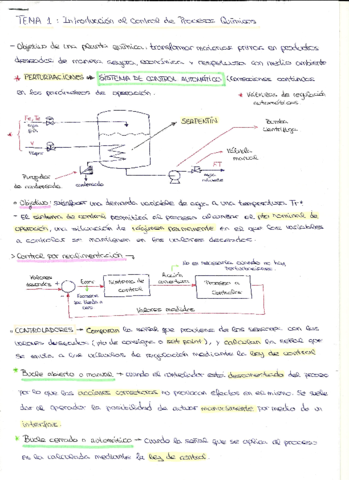 TEMA 1: Introducción al Control de Procesos Químicos
- Objetivo de una planta química: transformar materias primas en productos
deseados de manera segura, económica y respetuosa con medio ambiente
* PERTURBACIONES → SISTEMA DE CONTROL AUTOMÁTICO (variaciones continuas
en los parámetros de operación.
* Válvulas de regulación
automáticas
Fe, Te
agua
fría
V
vapor
SERPENTÍN
Bomba
centrífuga
Válvula
manual
F, T
agua
caliente
Purgador
de condensado
condensado
- Objetivo: satisfacer una demanda variable de agua a una temperatura T
- El sistema de control permitirá al proceso alcanzar el pto nominal de
operación, una situación de régimen permanente en el que las variables
a controlar se mantienen en los valores deseados.
> Control por realimentación
No es necesaria cuando no hay
perturbaciones.
Valores
deseados
Error
Sistema de
control
Acción
correctora
Proceso a
controlar
Valores medidos
- CONTROLADORES → Comparan la señal que proviene de los sensores con los
valores deseados (pto de consigna o set point), y calculan la señal que
se envía a las válvulas de regulación mediante la ley de control
* Bucle abierto o manual → cuando el controlador está desconectado del proceso
por lo que las acciones correctoras no provocan efectos en el mismo. Se suele
dar al operador la posibilidad de actuar manualmente por medio de un
interfaz.
* Bucle cerrado o automático → Cuando la señal que se aplica al proceso
es la calculada mediante la ley de control.